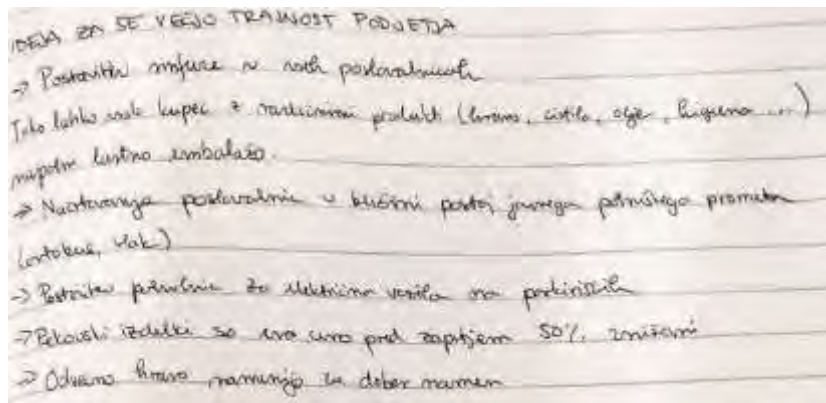 IDEJA ZA ŠE VEČJO TRAJNOST PODJETJA
→ Postavitev v vseh poslovalnicah
Tako lahko vsak kupec z različnimi produkti (hrano, čistila, olje, higiena ...)
napolni lastno embalažo.
→ Nastavanja poslovalnic v bližini postaj javnega potniškega prometa
(avtobus, vlak)
→ Postavitev polnilnic za električna vozila na parkiriščih
→ Pekovski izdelki so eno uro pred zaprtjem 50% znižani
→ Odvečno hrano namenijo za dober namen